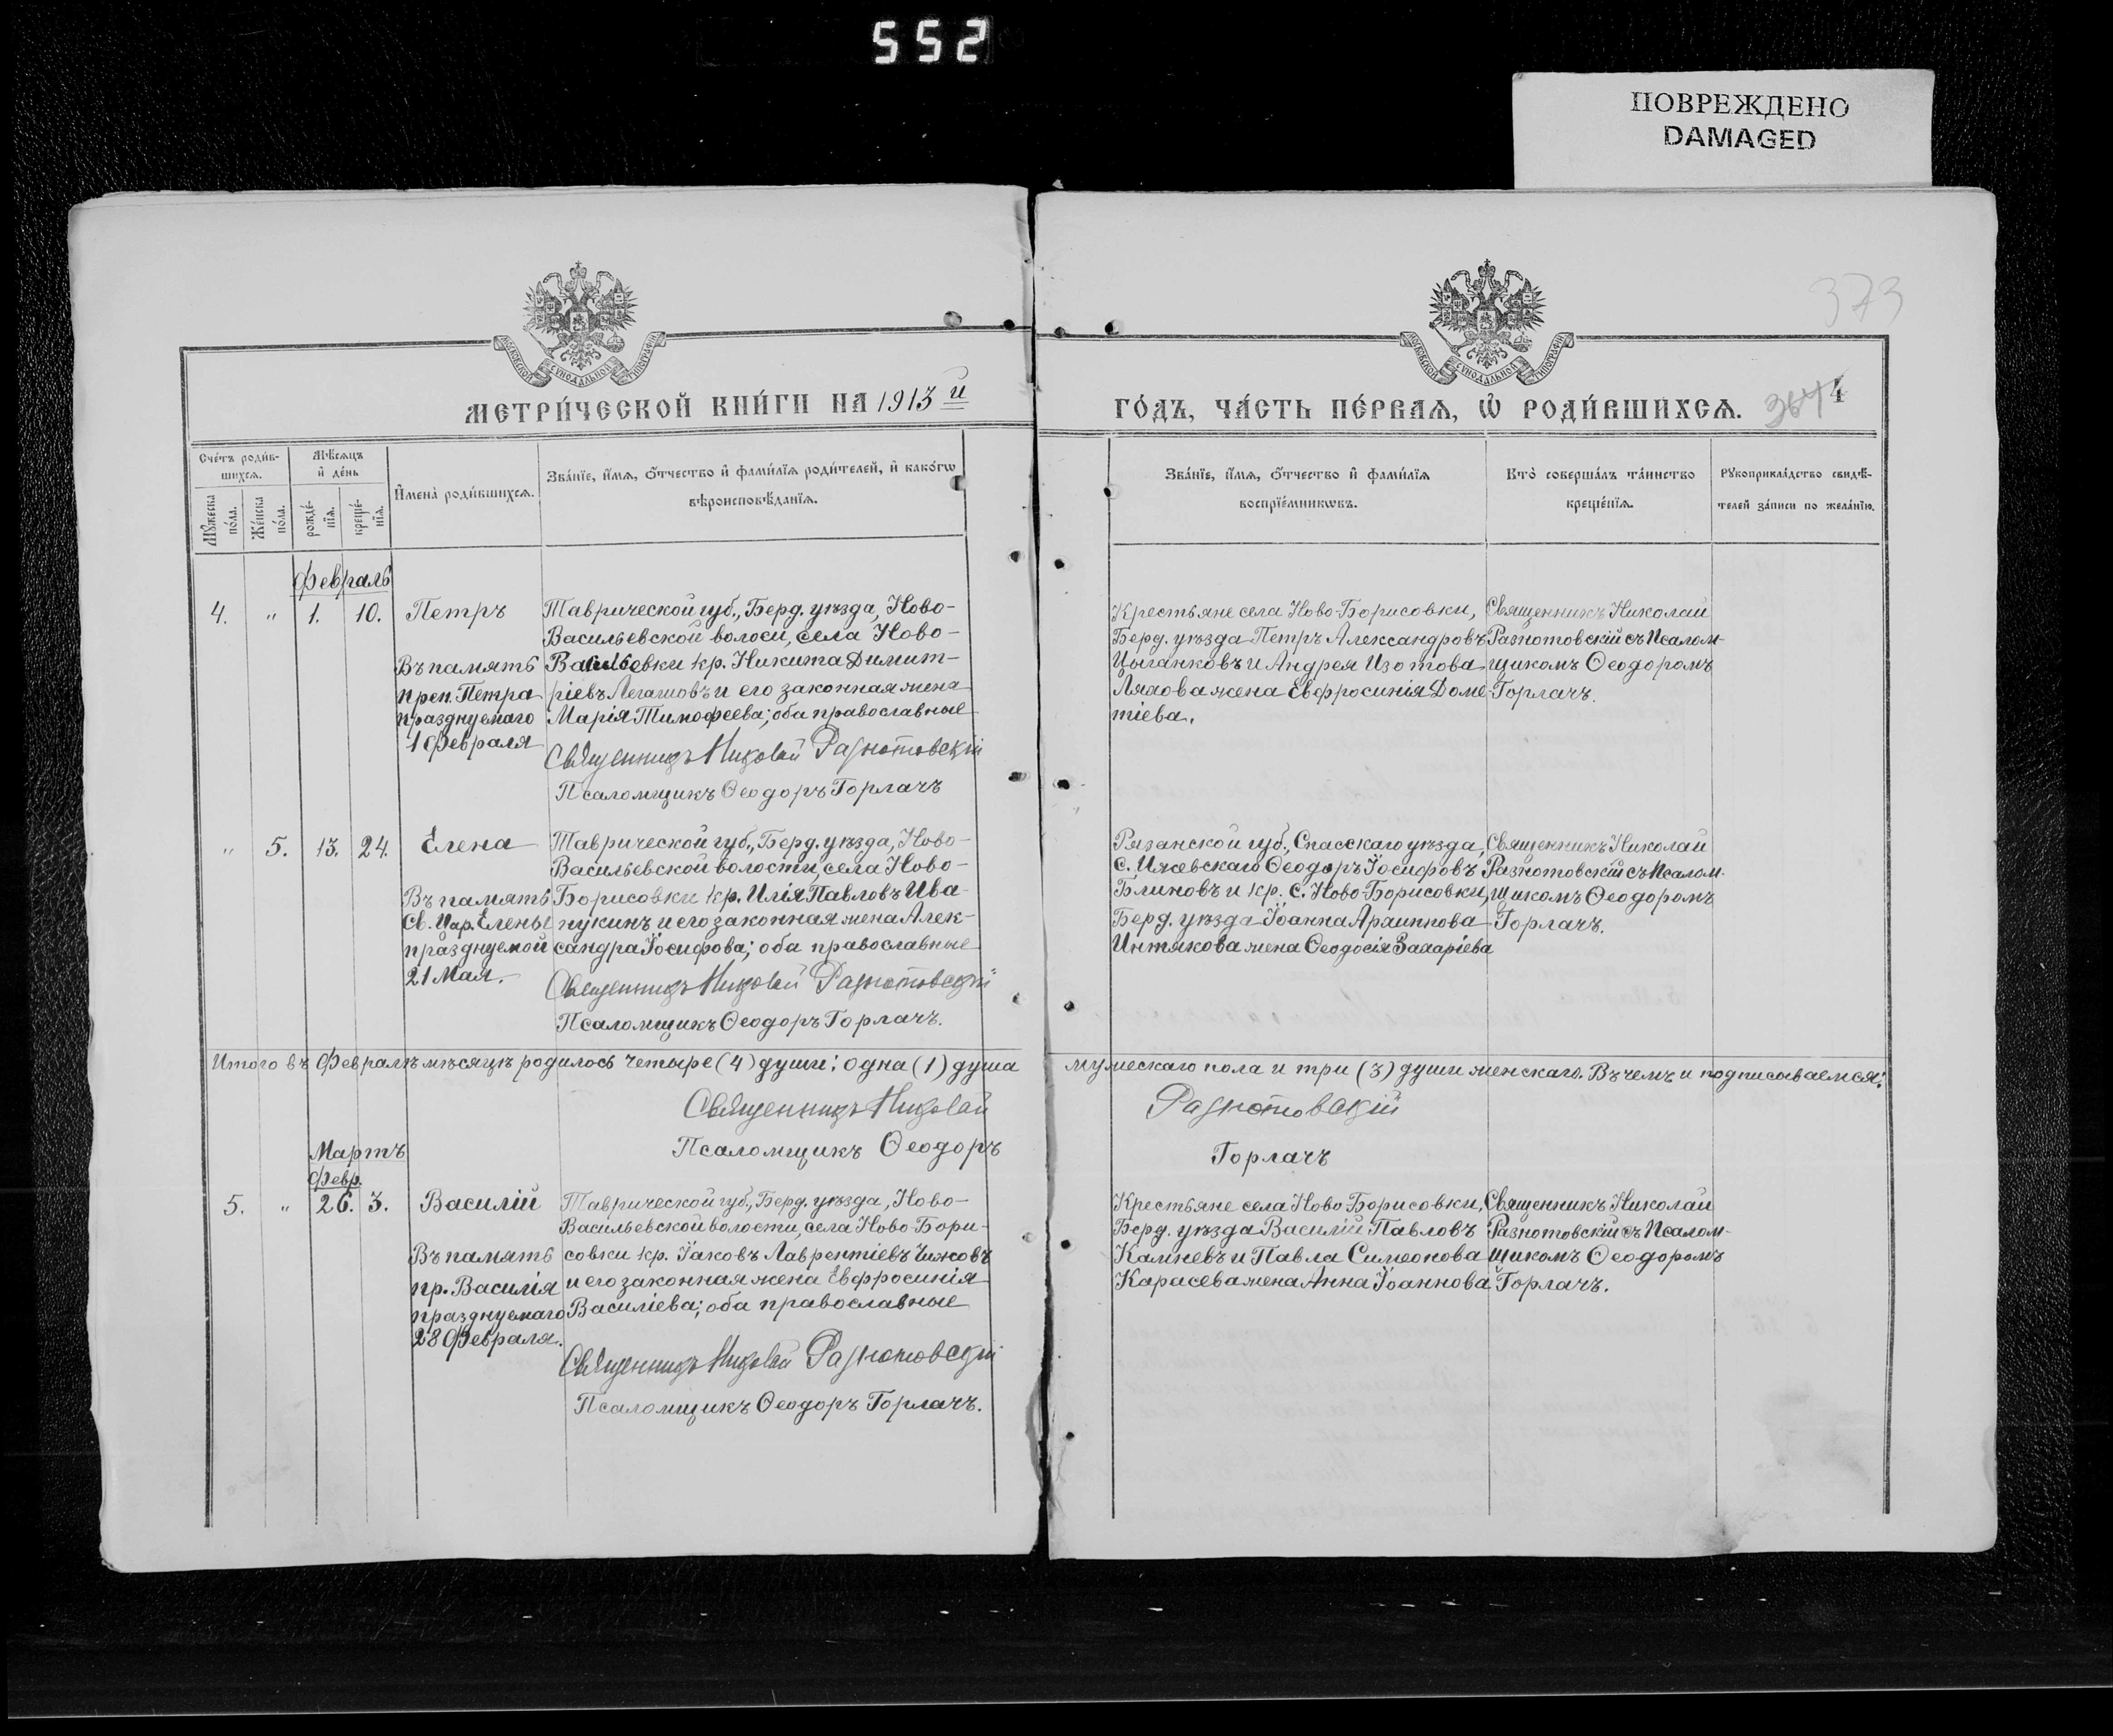 552
ПОВРЕЖДЕНО
DAMAGED
373
МОСКОВСКОЙ СѴНОДАЛЬНОЙ ТИПОГРАФІИ
МОСКОВСКОЙ СѴНОДАЛЬНОЙ ТИПОГРАФІИ
МЕТРИ́ЧЕСКОЙ КНИ́ГИ НА 1913й
ГО́ДЪ, ЧА́СТЬ ПЕ́РВАѦ, Ѡ҆ РОДИ́ВШИХСѦ. 364 4
Сче́тъ роди́в-
шихсѧ.
Мѣ́сѧцъ
и҆ де́нь
И҆мена̀ роди́вшихсѧ.
Зва́нїе, и҆́мѧ, ѻ҆́тчество и҆ фами́лїѧ роди́телей, и҆ како́гѡ
вѣроисповѣ́данїѧ.
Мꙋ́жеска
по́ла.
Же́нска
по́ла.
рожде́-
нїѧ.
креще́-
нїѧ.
Зва́нїе, и҆́мѧ, ѻ҆́тчество и҆ фами́лїѧ
воспрїе́мникѡвъ.
Кто̀ соверша́лъ та́инство
креще́нїѧ.
Рꙋкоприкла́дство свидѣ́-
телей за́писи по жела́нїю.
Февраль
4. " 1. 10. Петръ
Въ память
преп. Петра
празднуемаго
1 Февраля
Таврической губ., Берд. уѣзда, Ново-
Васильевской волоси, села Ново-
Васильевки кр. Никита Димит-
ріевъ Легашовъ и его законная жена
Марія Тимофеева; оба православные
Священникъ Николай Разнотовскій
Псаломщикъ Ѳеодоръ Горлачъ
Крестьяне села Ново-Борисовки,
Берд. уѣзда Петръ Александровъ
Цыганковъ и Андрея Изотова
Ляхова жена Евфросинія Доме-
тіева.
Священникъ Николай
Разнотовскій съ Псалом-
щикомъ Ѳеодоромъ
Горлачъ.
" 5. 13. 24. Елена
Въ память
Св. Цар. Елены
празднуемой
21 Мая.
Таврической губ., Берд. уѣзда, Ново-
Васильевской волости, села Ново-
Борисовки кр. Илія Павловъ Ива-
нукинъ и его законная жена Алек-
сандра Іосифова; оба православные
Священникъ Николай Разнотовскій
Псаломщикъ Ѳеодоръ Горлачъ.
Рязанской губ., Спасскаго уѣзда,
с. Ижевскаго Ѳеодоръ Іосифовъ
Блиновъ и кр. с. Ново-Борисовки,
Берд. уѣзда Іоанна Архиппова
Интякова жена Ѳеодосія Захаріева
Священникъ Николай
Разнотовскій съ Псалом-
щикомъ Ѳеодоромъ
Горлачъ.
Итого въ Февралѣ мѣсяцѣ родилось четыре (4) души: одна (1) душа мужескаго пола и три (3) души женскаго. Въ чемъ и подписываемся:
Священникъ Николай Разнотовскій
Псаломщикъ Ѳеодоръ Горлачъ
Мартъ
Февр.
5. " 26. 3. Василій
Въ память
пр. Василія
празднуемаго
28 Февраля.
Таврической губ., Берд. уѣзда, Ново-
Васильевской волости, села Ново-Бори-
совки кр. Іаковъ Лаврентіевъ Чижовъ
и его законная жена Евфросинія
Василіева; оба православные
Священникъ Николай Разнотовскій
Псаломщикъ Ѳеодоръ Горлачъ.
Крестьяне села Ново-Борисовки,
Берд. уѣзда Василій Павловъ
Камневъ и Павла Симеонова
Карасева жена Анна Іоаннова
Священникъ Николай
Разнотовскій съ Псалом-
щикомъ Ѳеодоромъ
Горлачъ.